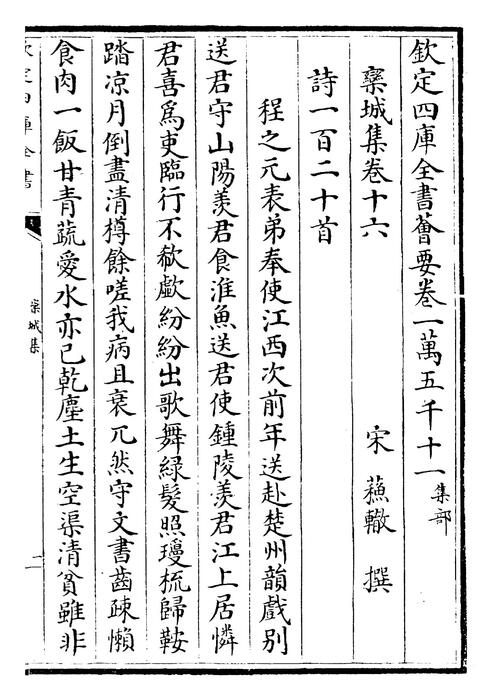 欽定四庫全書薈要卷一萬五千十一集部
欒城集卷十六
宋 蘓轍 撰
詩一百二十首
程之元表弟奉使江西次前年送赴楚州韻戲别
送君守山陽羡君食淮魚送君使鍾陵羡君江上居憐
君喜爲吏臨行不欷歔紛紛出歌舞緑髮照瓊梳歸鞍
踏凉月倒盡清樽餘嗟我病且衰兀然守文書齒踈懶
食肉一飯甘青蔬愛水亦已乾塵土生空渠清貧雖非
欽定四庫全書
欒城集
一